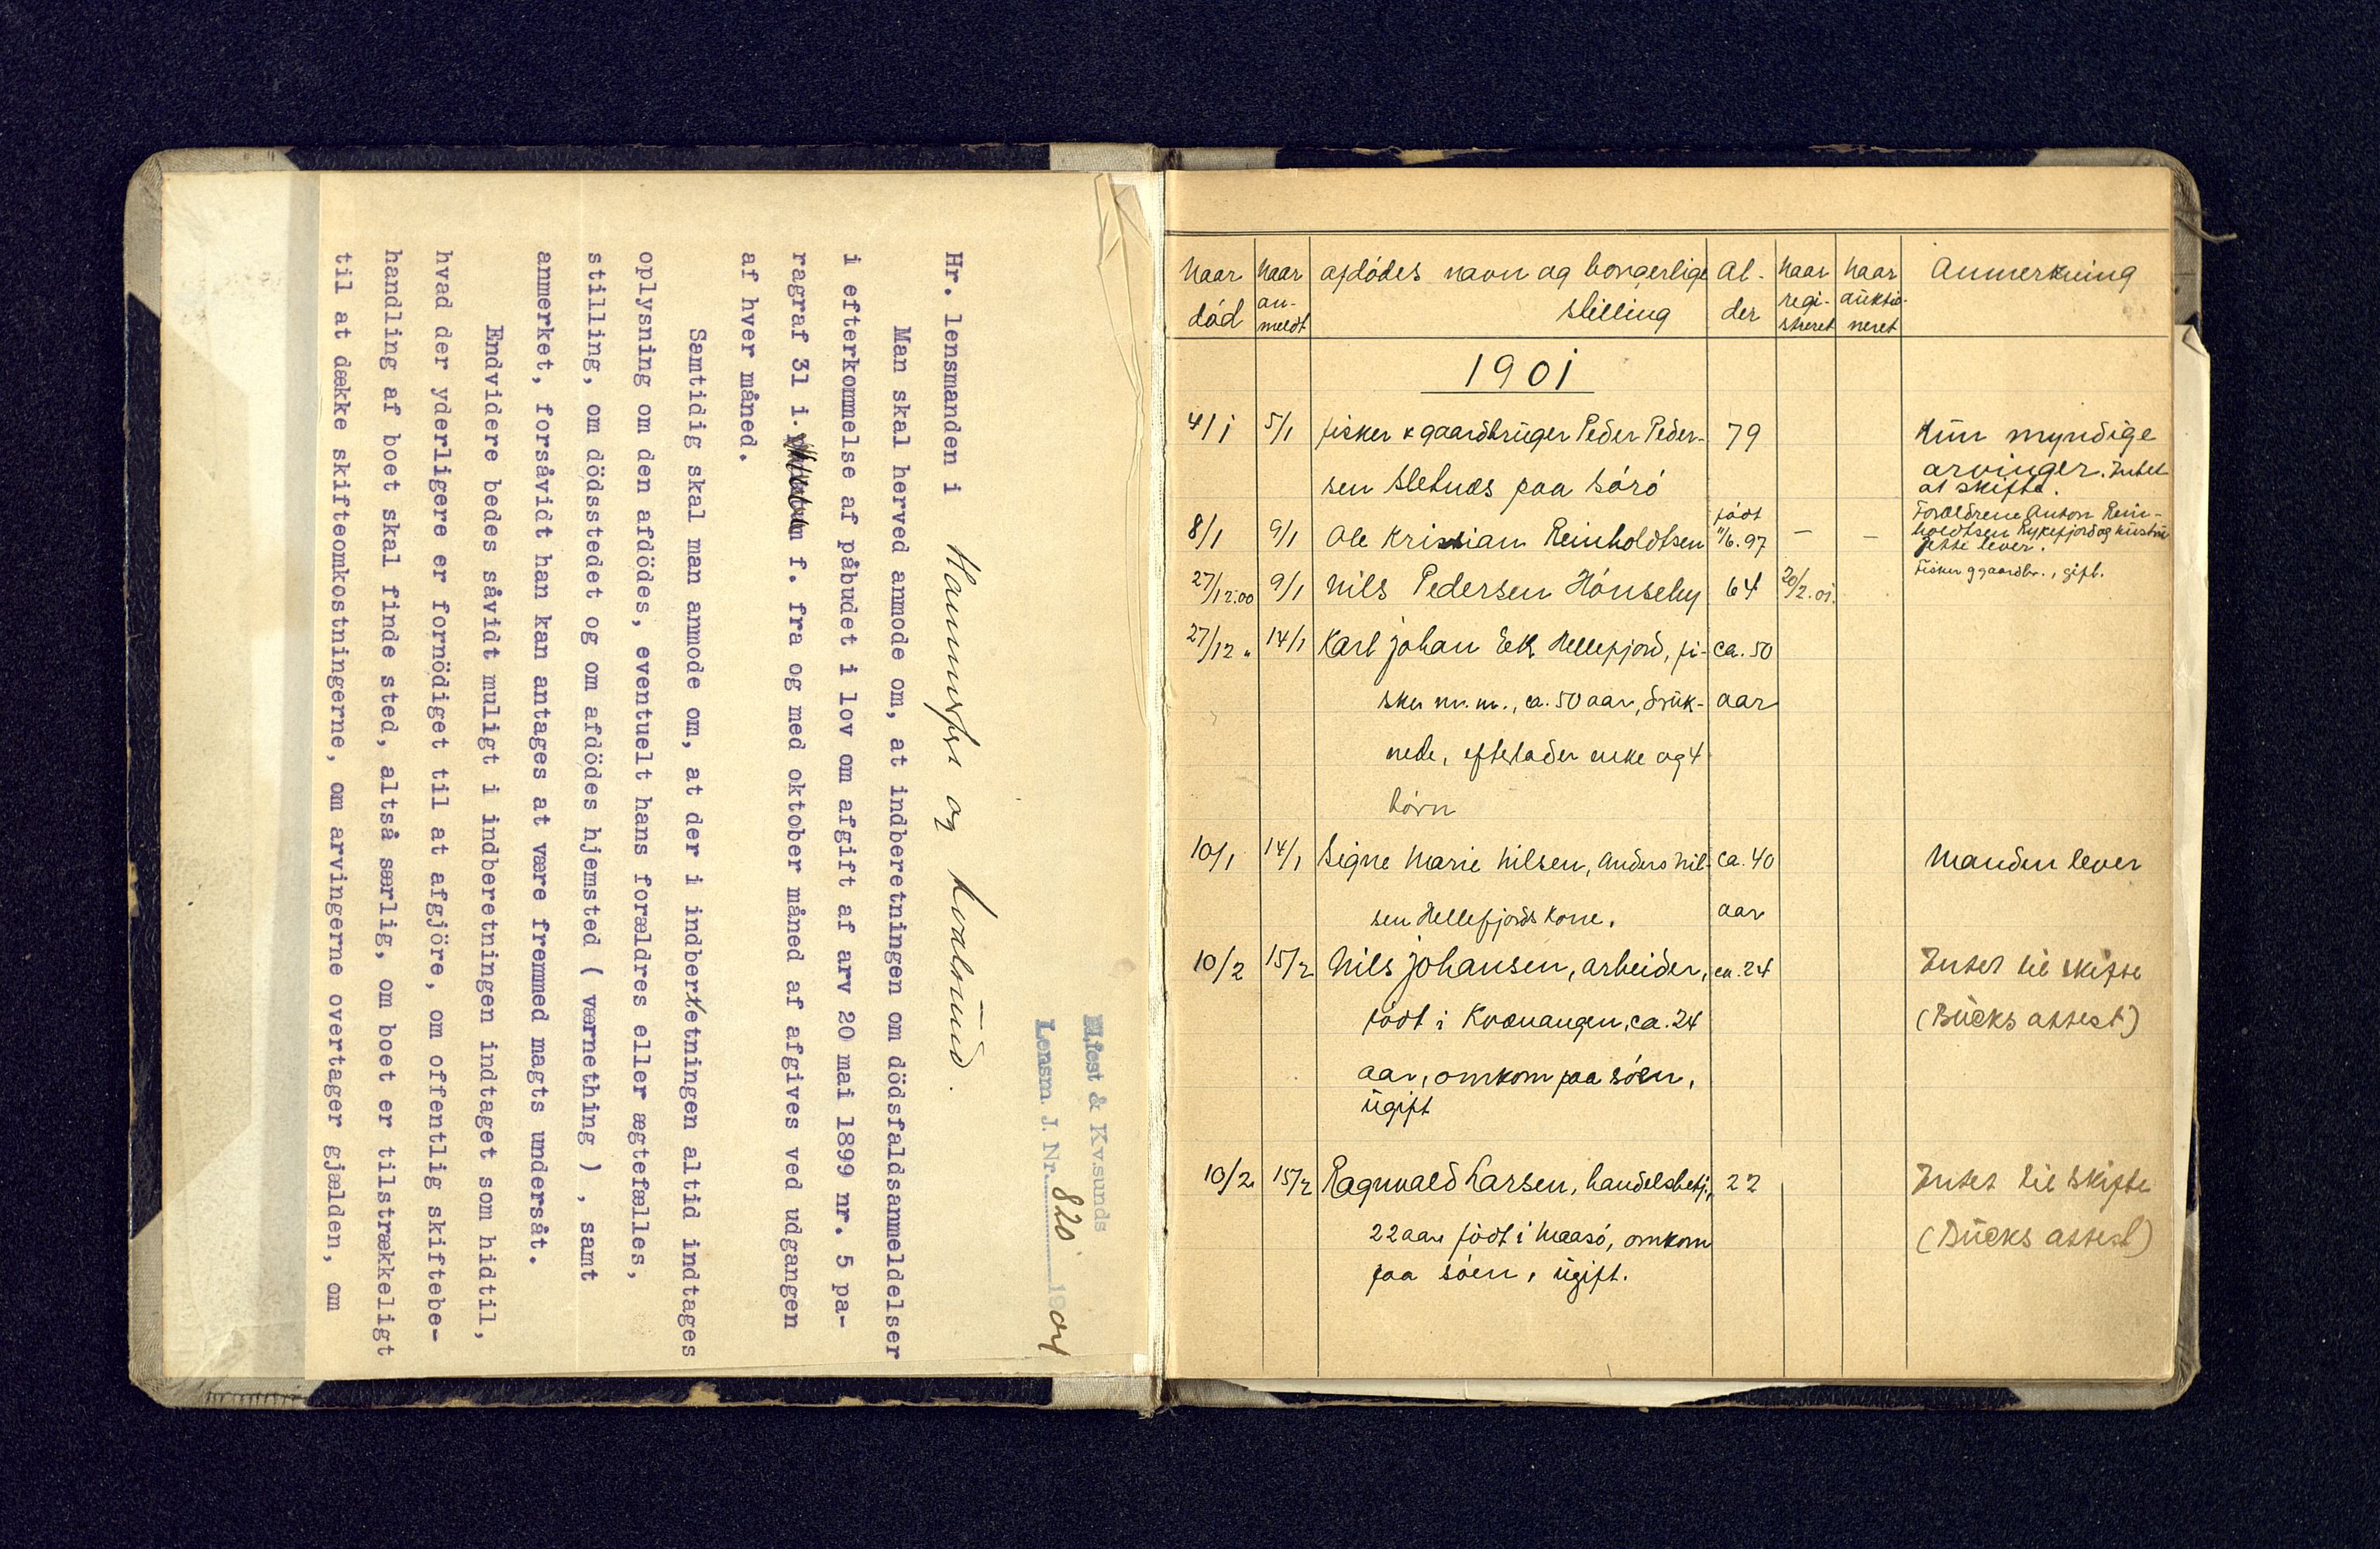 H.fest & Kv.sunds
Lensm. J. Nr. 820 1904
Hr. lensmanden i Hammerfest og Kvalsund.
Man skal herved anmode om, at indberetningen om dödsfaldsanmeldelser
i efterkommelse af påbudet i lov om afgift af arv 20 mai 1899 nr. 5 pa-
ragraf 31 i. f. fra og med oktober måned af afgives ved udgangen
af hver måned.
Samtidig skal man anmode om, at der i indberetningen altid indtages
oplysning om den afdödes, eventuelt hans forældres eller ægtefælles,
stilling, om dödsstedet og om afdödes hjemsted ( værnething ) , samt
anmerket, forsåvidt han kan antages at være fremmed magts undersåt.
Endvidere bedes såvidt muligt i indberetningen indtaget som hidtil,
hvad der yderligere er fornödiget til at afgjöre, om offentlig skiftebe-
handling af boet skal finde sted, altså særlig, om boet er tilstrækkeligt
til at dække skifteomkostningerne, om arvingerne overtager gjælden, om
Naar død | Naar an-meldt | afdødes navn og borgerlige stilling | Al-der | Naar regi-streret | Naar auktio-neret | Anmerkning
1901
4/1 5/1 fisker & gaardbruger Peder Peder- 79 Kun myndige
sen Sletnes paa Sørø arvinger. Intet
at skifte.
8/1 9/1 Ole Kristian Reinholdtsen født 11/6.97 — — Forældrene Anton Rein-
holdtsen Rykefjord og hustru
begge lever.
27/12.00 9/1 Nils Pedersen Hønseby 64 20/2.01. Fisker g gaardbr., gift.
27/12 " 14/1 Karl Johan Eek Hellefjord, fi- ca. 50
sker m. m., ca. 50 aar, druk- aar
nede, efterlader enke og 4
børn
10/1 14/1 Signe Marie Nilsen, Anders Nil- ca. 40 Manden lever
sen Hellefjords kone. aar
10/2 15/2 Nils Johansen, arbeider, ca. 24 Intet til skifte
født i Kvænangen, ca. 24 (Bücks attest)
aar, omkom paa søen,
ugift
10/2 15/2 Ragnvald Larsen, handelsbetj., 22 Intet til skifte
22 aar født i Maasø, omkom (Bücks attest)
paa søen, ugift.